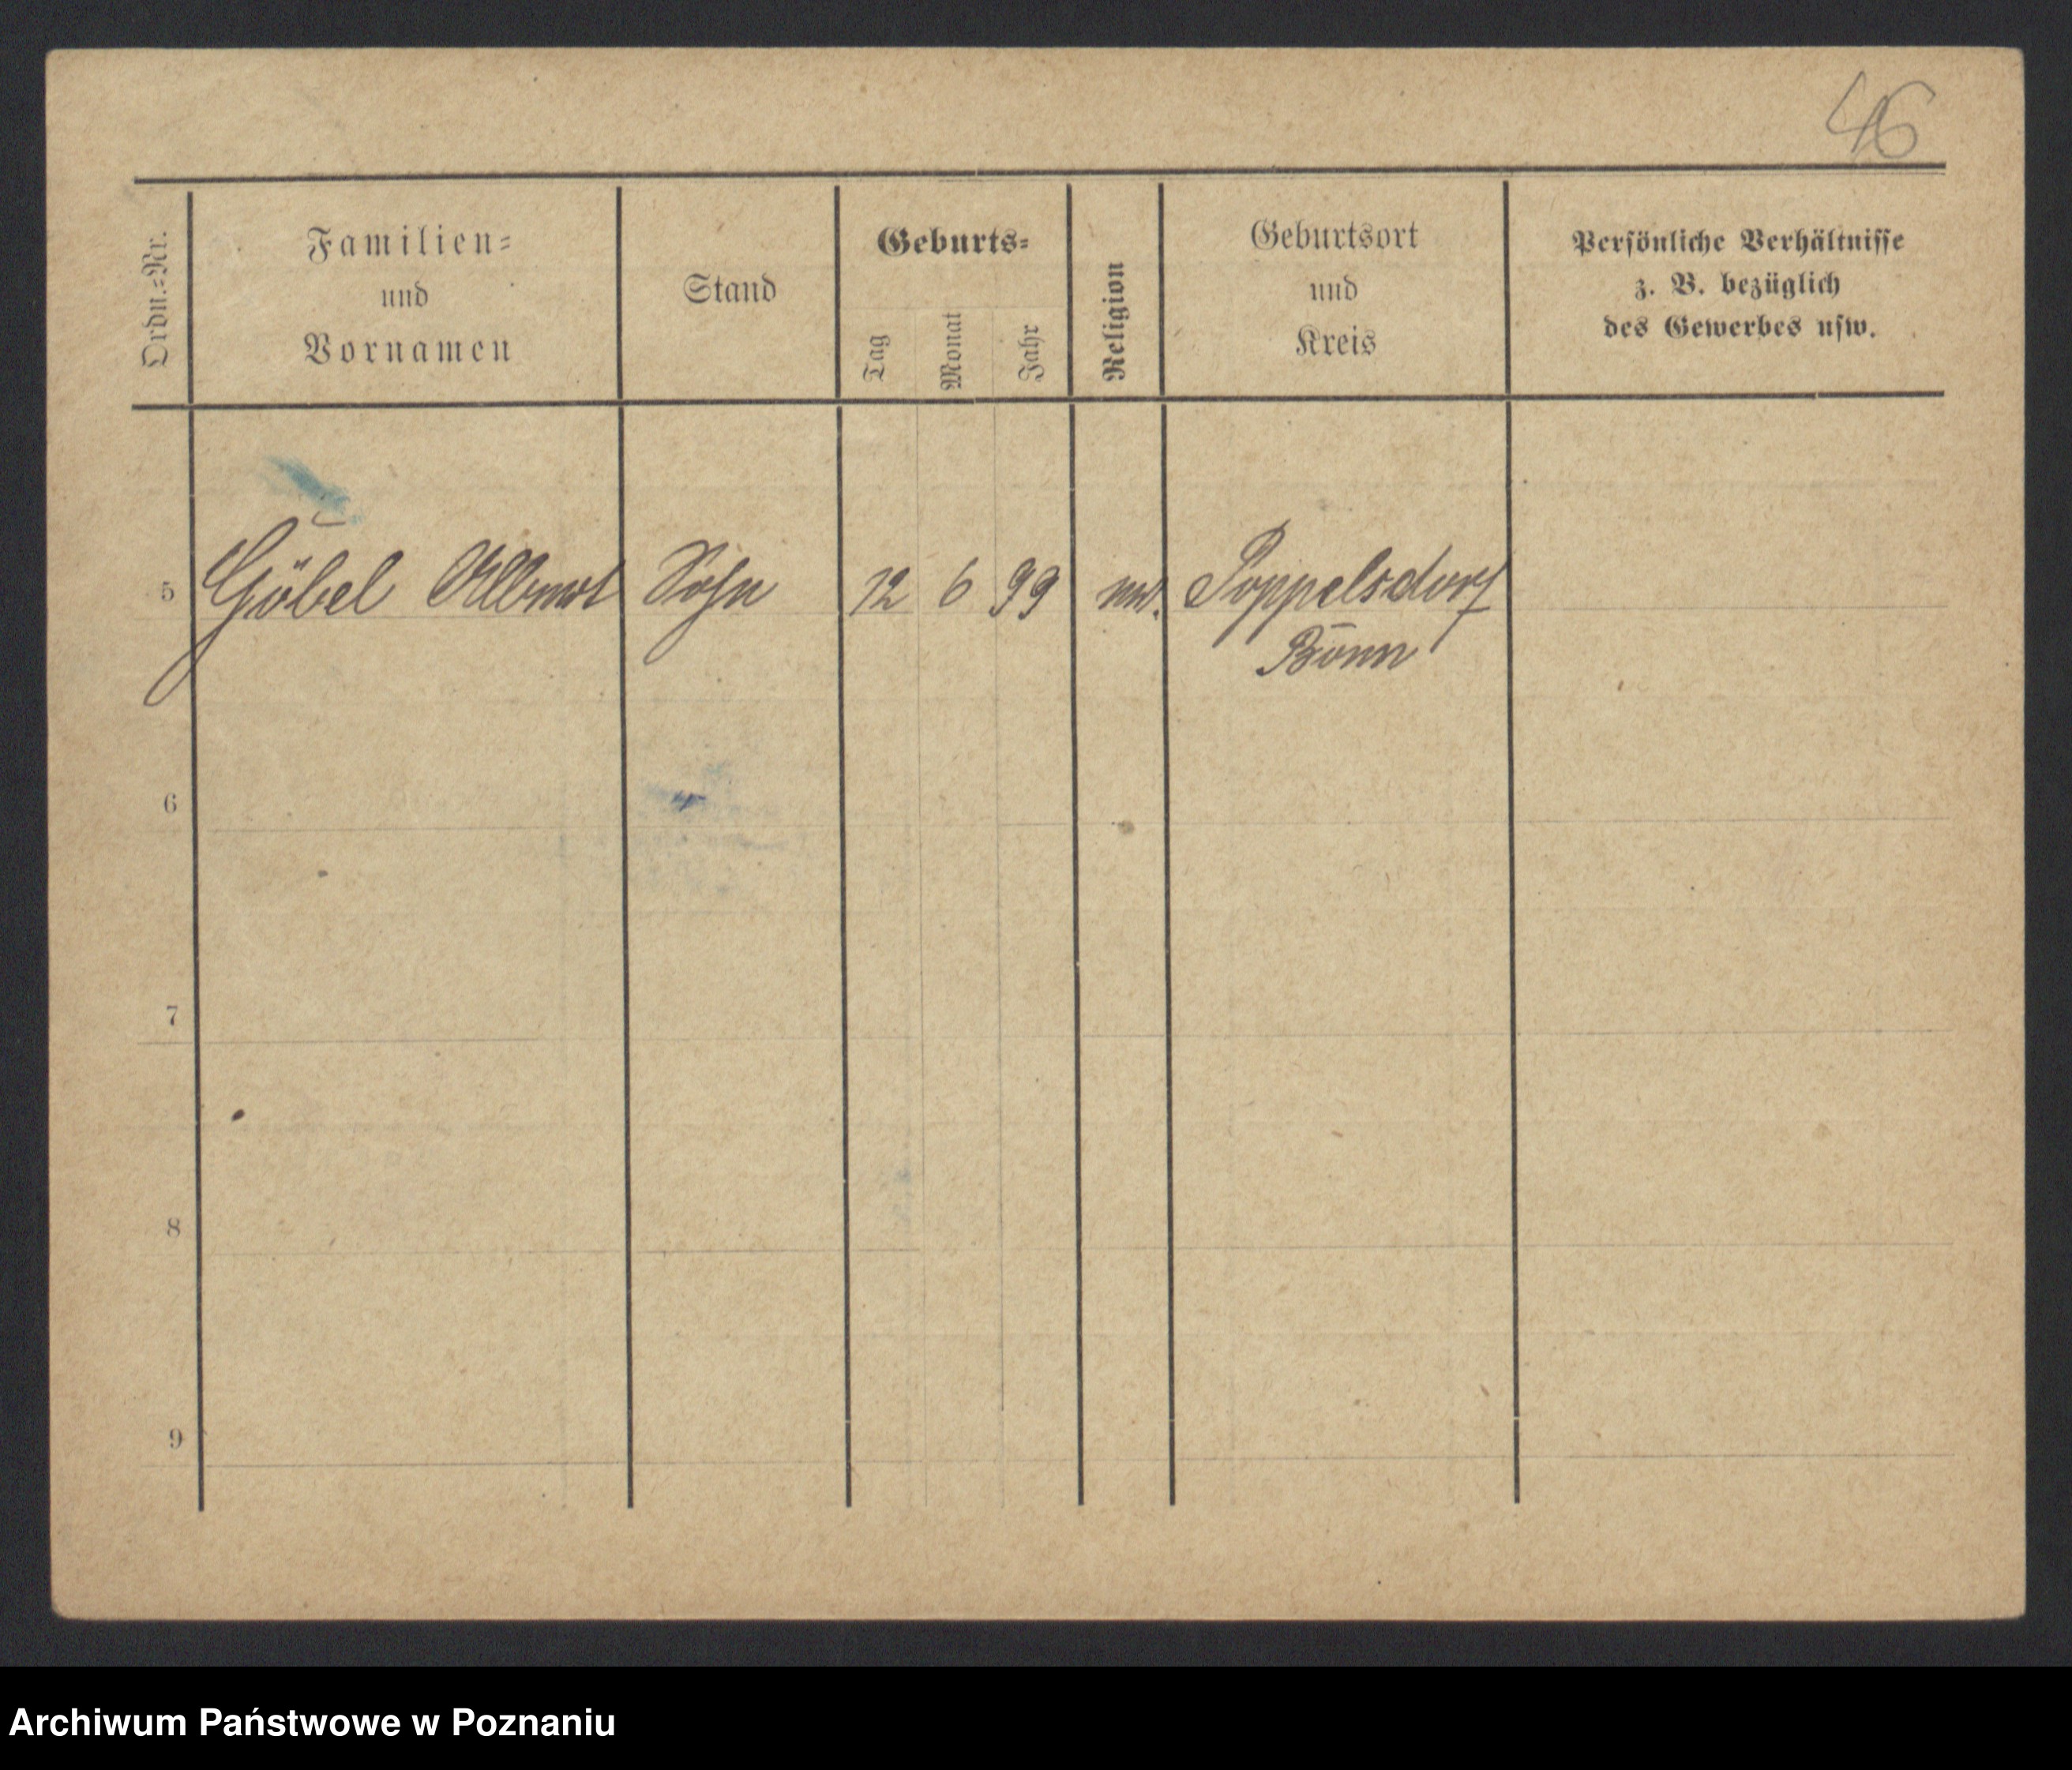 46
Ordn.=Nr.
Familien=
und
Vornamen
Stand
Geburts=
Tag
Monat
Jahr
Religion
Geburtsort
und
Kreis
Persönliche Verhältnisse
z. B. bezüglich
des Gewerbes usw.
5 Göbel Albert Sohn 12 6 99 Poppelsdorf
Bonn
6
7
8
9
Archiwum Państwowe w Poznaniu